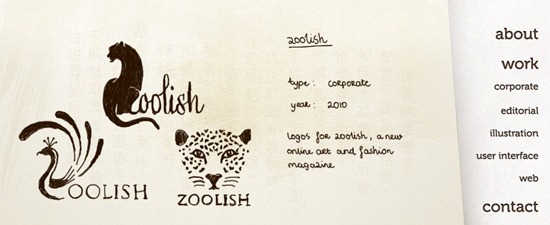 zoolish
ZOOLISH
ZOOLISH
zoolish
type: corporate
year: 2010
logos for zoolish, a new
online art and fashion
magazine
about
work
corporate
editorial
illustration
user interface
web
contact